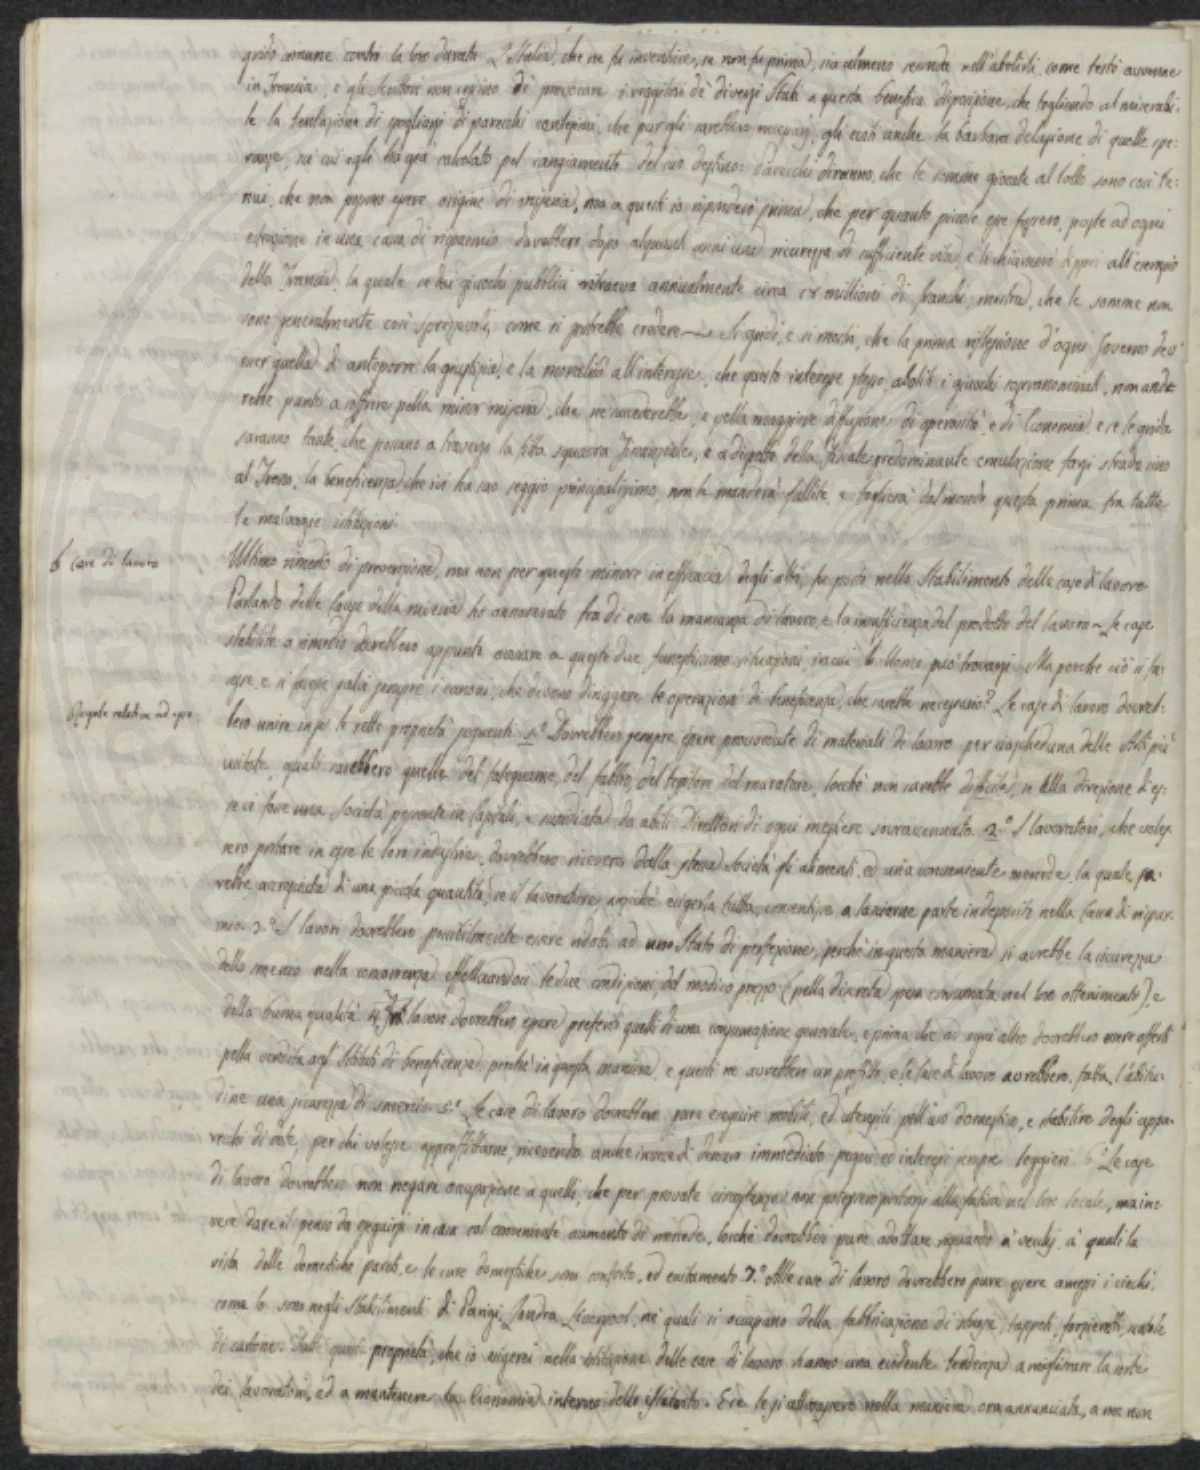 grido comune contro la loro durata. L'Italia, che ne fu inventrice, se non fu prima, sia almeno seconda nell'abolirli, come testè avvenne
in Francia, e gli Scrittori non cessino di provocare i reggitori de' diversi Stati a questa benefica disposizione, che togliendo al miserabi-
le la tentazione di spogliarsi di parecchi centesimi, che pur gli sarebbero necessarj, gli eviti anche la barbara delusione di quelle spe-
ranze, su cui egli ha già calcolato pel cangiamento del suo destino. Parecchi diranno, che le somme giocate al lotto sono così te-
nui, che non possono essere origine di miseria, ma a questi io risponderò prima, che per quanto piccole esse fossero, poste ad ogni
estrazione in una cassa di risparmio darebbero dopo alquanti anni una sicurezza di sufficiente vita, e li chiamerò all'esempio
della Francia, la quale se dai giuochi pubblici ritraeva annualmente circa millioni di franchi, mostra, che le somme non
sono generalmente così sprezzevoli, come si potrebbe credere — Si gridi, e si mostri, che la prima riflessione d'ogni Governo dev'
esser quella di anteporre la giustizia, e la moralità all'interesse, che questo interesse stesso, aboliti i giuochi sopranominati, non ande-
rebbe punto a soffrire pella minor miseria, che ne succederebbe, e pella maggiore diffusione di operosità, e di Economia, e se le grida
saranno tante, che possano a traverso la fitta squadra Finanziale, e a dispetto della fiscale predominante emulazione farsi strada sino
al Trono, la beneficenza, che ivi ha suo seggio principalissimo, non le manderà fallite, e toglierà dal mondo questa prima fra tutte
le malvagie istituzioni.
6 Case di lavoro
Ultimo rimedio di prevenzione, ma non per questo minore in efficacia degli altri, fu posto nello Stabilimento delle case di lavoro
Parlando delle Cause della miseria ho annoverato fra di esse la mancanza di lavoro, e la insufficienza del prodotto del lavoro — Le case
stabilite a rimedio dovrebbero appunto ovviare a queste due funestissime situazioni, in cui l'Uomo può trovarsi. Ma perchè ciò si fa-
cesse, e si fossero salvi sempre i canoni, che devono dirigere le operazioni di beneficenza, che sarebbe necessario? Le case di lavoro dovreb-
Regole relative ad esse
bero unire in se le sette proprietà seguenti. 1.° Dovrebbero sempre essere provvedute di materiali di lavoro per ciascheduna delle Arti più
usitate, quali sarebbero quelle del falegname, del fabbro, del tessitore, del muratore, locchè non sarebbe difficile, se alla direzione d'es-
se vi fosse una Società possente in Capitali, e sussidiata da abili Direttori di ogni mestiere sovraccennato. 2.° I lavoratori, che voles-
sero portare in esse le loro industrie, dovrebbero ricevere dalla stessa Società gli alimenti, ed una conveniente mercede, la quale sa-
rebbe accresciuta di una piccola quantità, se il lavoratore, anzichè esigerla tutta, consentisse a lasciarne parte in deposito nella Cassa di rispar-
mio. 3.° I lavori dovrebbero possibilmente essere ridotti ad uno Stato di perfezione, perchè in questa maniera si avrebbe la sicurezza
dello smercio nella concorrenza, effettuandosi le due condizioni, del modico prezzo (pella discreta spesa consumata nel loro ottenimento), e
della buona qualità. 4.° lavori dovrebbero essere preferiti quelli di una consumazione generale, e prima che ad ogni altro dovrebbero essere offerti
pella vendita agl'Istituti di beneficenza, perchè in questa maniera, e questi ne avrebbero un profitto, e le case di lavoro avrebbero, fatta l'abitu-
dine una sicurezza di smercio. 5.° Le case di lavoro dovrebbero pure eseguire mobili, ed utensili pell'uso domestico, e stabilire degli appa-
recchi di dote, per chi volesse approffittarne, ricevendo anche invece di denaro immediato pegni ed interessi sempre leggieri. 6.° Le case
di lavoro dovrebbero non negare occupazione a quelli, che per provate circostanze non potessero portarsi alla fatica nel loro locale, ma inve-
vece dare il penso da eseguirsi in casa col conveniente aumento di mercede, locchè dovrebbesi pure adottare riguardo a' vecchj, a' quali la
vista delle domestiche pareti, e le cure domestiche sono conforto, ed eccitamento. 7.° Alle case di lavoro dovrebbero pure essere ammessi i ciechi,
come lo sono negli Stabilimenti di Parigi, Londra, Liverpool, ne' quali si occupano della fabbricazione di stuoje, tappeti, scatole
di cartone. Tutte queste proprietà, che io esigerei nella istituzione delle case di lavoro hanno una evidente tendenza a migliorare la sorte
dei lavoratori, ed a mantenere la Economia interna dello Istituto. E se le si attivassero nella maniera ora annunciata, a me non